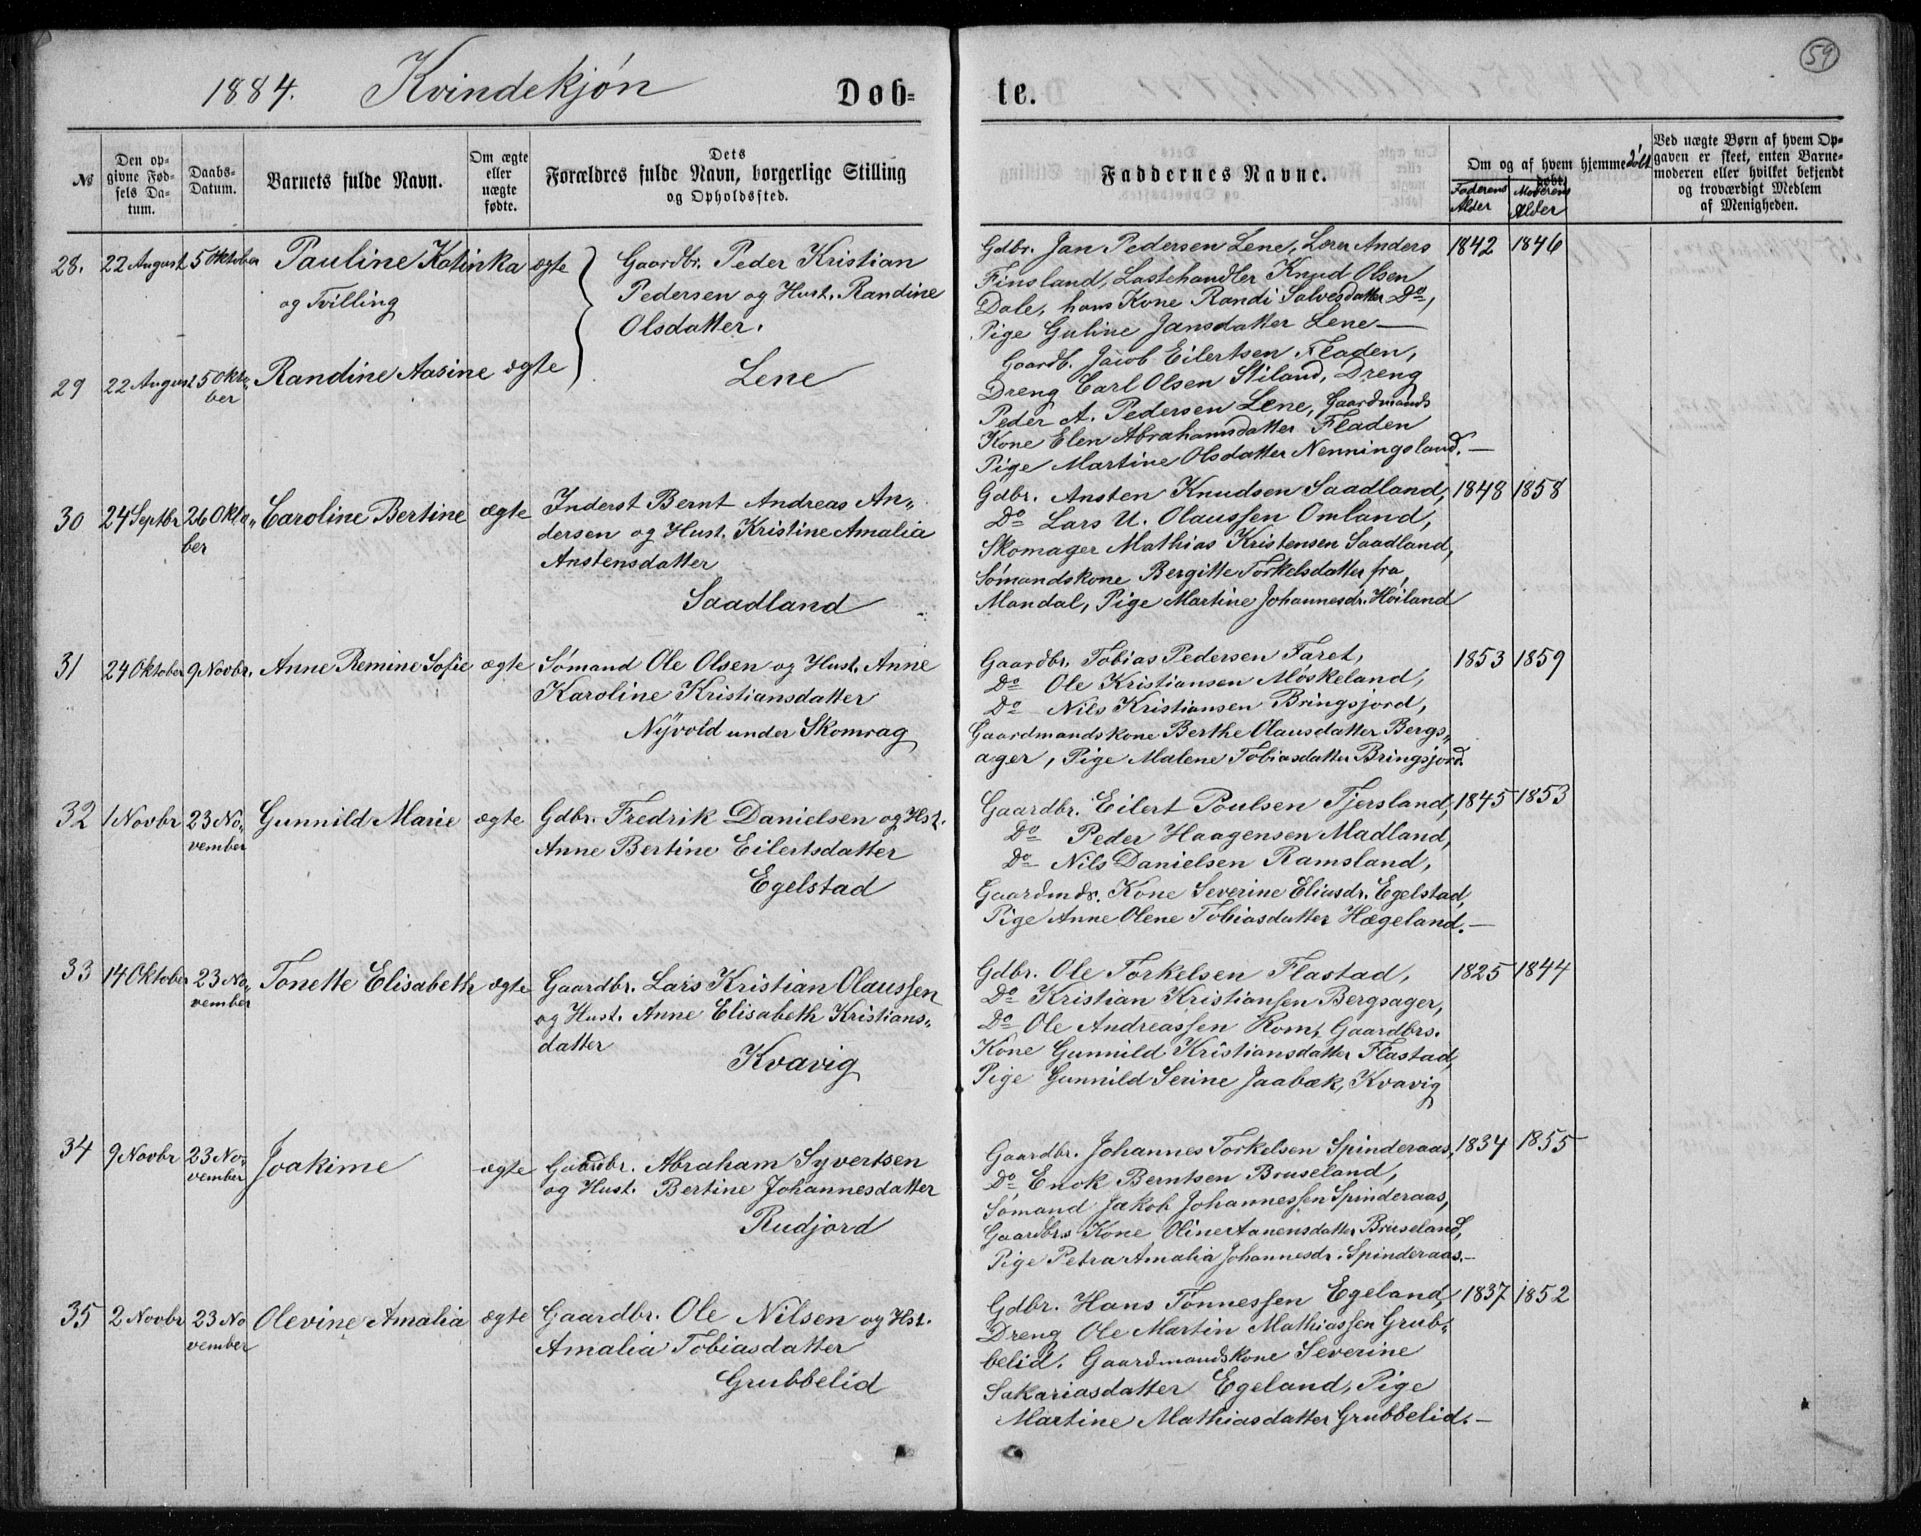 1884. Kvindekjøn Døb-
te.
59
№
Den op-
givne Fød-
sels Da-
tum.
Daabs-
Datum.
Barnets fulde Navn.
Om ægte
eller
uægte
fødte.
Dets
Forældres fulde Navn, borgerlige Stilling
og Opholdssted.
Faddernes Navne.
Om og af hvem hjemmedøbt
Faderens
Alder
Moderens
Alder
Ved uægte Børn af hvem Op-
gaven er skeet, enten Barne-
moderen eller hvilket bekjendt
og troværdigt Medlem
af Menigheden.
28. 22 August 5 Oktober Pauline Katinka ægte
og Tvilling
Gaardbr. Peder Kristian
Pedersen og Hust. Randine
Olsdatter.
Lene
Gdbr. Jan Pedersen Lene, Lærer Anders 1842 1846
Finsland, Lastehandler Knud Olsen
Dale, hans Kone Randi Salvesdatter Do,
Pige Guline Jansdatter Lene —
29 22 August 5 Okto-
ber
Randine Aasine ægte
Gaardb. Jacob Eilertsen Fladen,
Dreng Carl Olsen Stiland, Dreng
Peder A. Pedersen Lene, Gaardmands
Kone Elen Abrahamsdatter Fladen
Pige Martine Olsdatter Nenningsland. —
30 24 Septbr 26 Okto-
ber
Caroline Bertine ægte
Inderst Bernt Andreas An-
dersen og Hust. Kristine Amalia
Anstensdatter
Saadland
Gdbr. Ansten Knudsen Saadland, 1848 1858
Do Lars U. Olaussen Omland,
Skomager Mathias Kristensen Saadland,
Sømandskone Bergitte Torkelsdatter fra
Mandal, Pige Martine Johannesdr. Høiland
31 24 Oktober 9 Novbr. Anne Remine Sofie ægte
Sømand Ole Olsen og Hust. Anne
Karoline Kristiansdatter
Nÿvold under Skomrag
Gaardbr. Tobias Pedersen Faret, 1853 1859
Do Ole Kristiansen Møskeland,
Do Nils Kristiansen Bringsjord,
Gaardmandskone Berthe Olausdatter Bergs-
ager, Pige Malene Tobiasdatter Bringsjord.
32 1 Novbr 23 No-
vember
Gunnild Marie ægte
Gdbr. Fredrik Danielsen og Hst.
Anne Bertine Eilertsdatter
Egelstad
Gaardbr. Eilert Poulsen Tjersland, 1845 1853
Do Peder Haagensen Madland,
Do Nils Danielsen Ramsland,
Gaardmds. Kone Severine Eliasdr. Egelstad,
Pige Anne Olene Tobiasdatter Hægeland. —
33 14 Oktober 23 No-
vember
Tonette Elisabeth ægte
Gaardbr. Lars Kristian Olaussen
og Hust. Anne Elisabeth Kristians-
datter
Kvavig
Gdbr. Ole Torkelsen Flastad, 1825 1844
Do Kristian Kristianssen Bergsager,
Do Ole Andreassen Rom, Gaardbrs.
Kone Gunnild Kristiansdatter Flastad,
Pige Gunnild Serine Jaabæk, Kvavig
34 9 Novbr 23 No-
vember
Joakime ægte
Gaardbr. Abraham Syvertsen
og Hust. Bertine Johannesdatter
Rudjord
Gaardbr. Johannes Torkelsen Spinderaas, 1834 1855
Do Enok Berntsen Bruseland,
Sømand Jakob Johannessen Spinderaas,
Gaardbrs Kone Oline Aanensdatter Bruseland,
Pige Petra Amalia Johannesdr. Spinderaas. —
35 2 Novbr 23 No
vember
Olevine Amalia ægte
Gaardbr. Ole Nilsen og Hst.
Amalia Tobiasdatter
Grubbelid
Gdbr. Hans Tønnessen Egeland, 1837 1852
Dreng Ole Martin Mathiassen Grub-
belid. Gaardmandskone Severine
Sakariasdatter Egeland, Pige
Martine Mathiasdatter Grubbelid. —